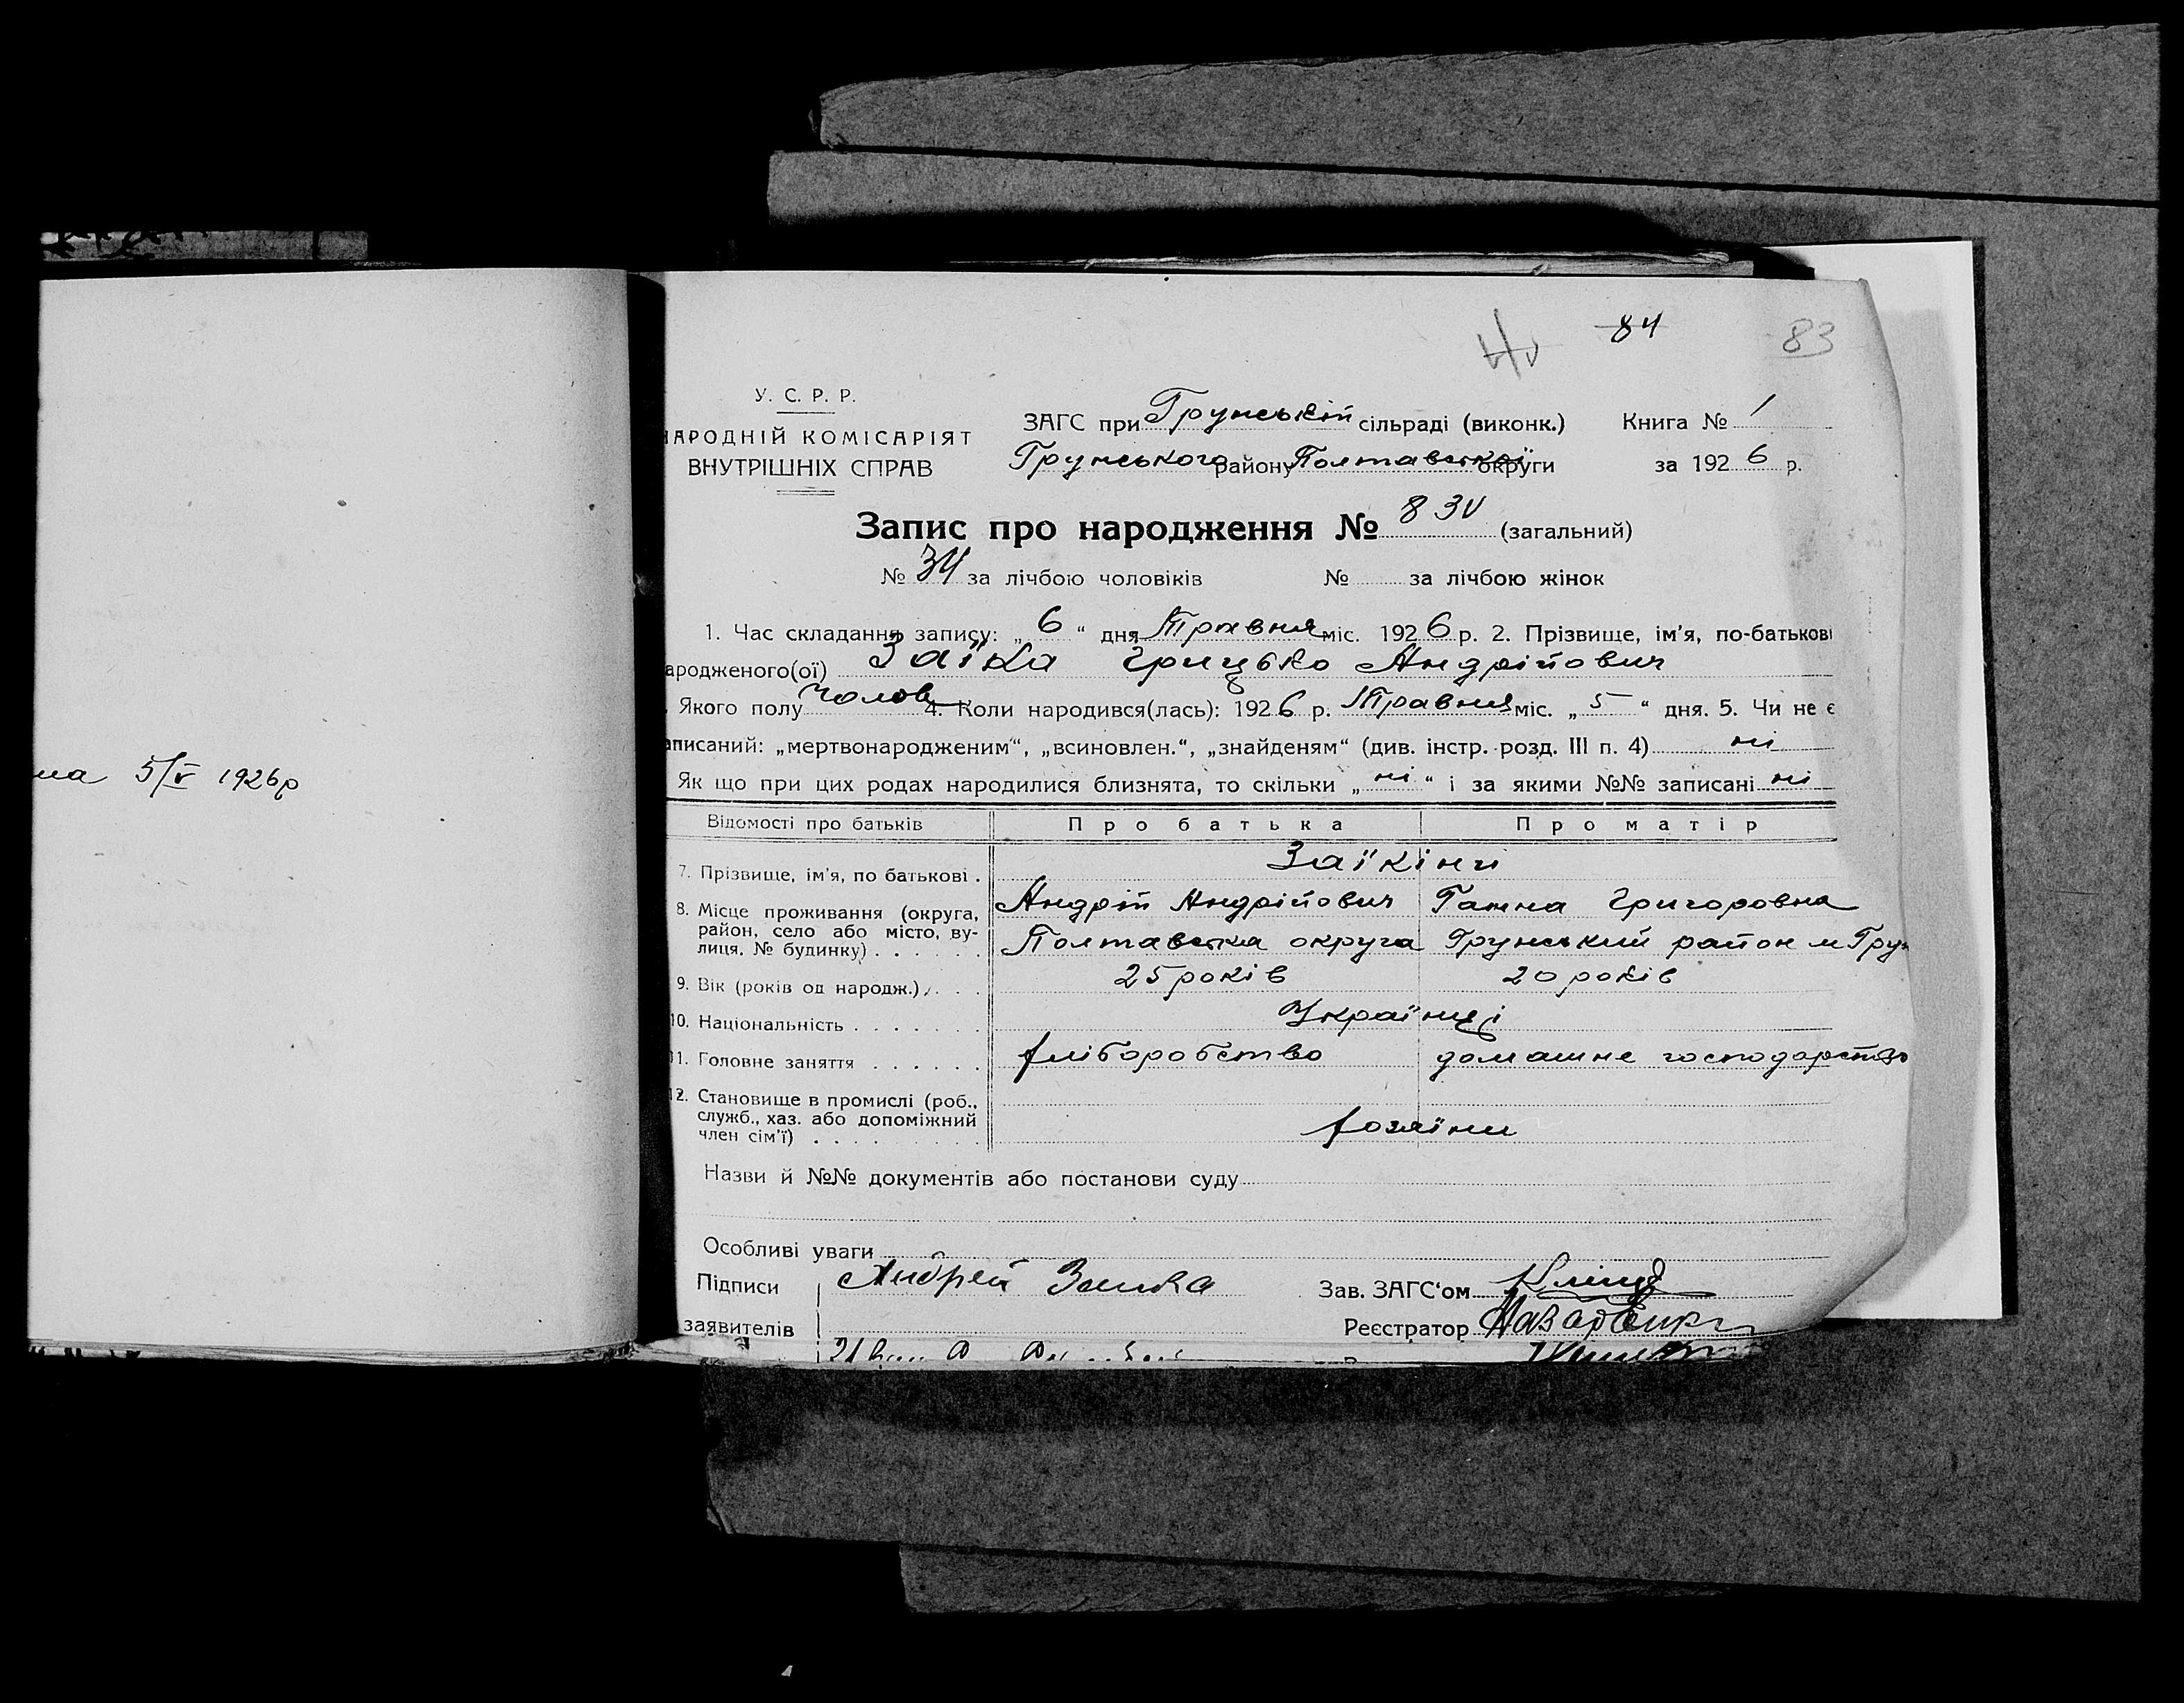 84
83
У. С. Р. Р.
НАРОДНІЙ КОМІСАРІЯТ
ВНУТРІШНІХ СПРАВ
ЗАГС при Грунській сільраді (виконк.) Книга № 1
Грунського району Полтавської округи за 1926 р.
Запис про народження № 83 (загальний)
№ 34 за лічбою чоловіків № за лічбою жінок
1. Час складання запису: „6“ дня Травня міс. 1926 р. 2. Прізвище, ім'я, по-батькові
ародженого(ої) Заїка Грицько Андрійович
. Якого полу Чолов 4. Коли народився(лась): 1926 р. Травня міс. „5“ дня. 5. Чи не є
аписаний: „мертвонародженим“, „всиновлен.“, „знайденям“ (див. інстр. розд. III п. 4) ні
Як що при цих родах народилися близнята, то скільки „ні“ і за якими №№ записані ні
на 5/V 1926р
Відомості про батьків Про батька Про матір
7. Прізвище, ім'я, по батькові . Заїкінчі
Андрій Андрійович Ганна Григоровна
8. Місце проживання (округа, район, село або місто, вулиця, № будинку) . . . . . Полтавська округа Грунський район м Грун
9. Вік (років од народж.) . . . 25 років 20 років
10. Національність . . . . . . . Українці
11. Головне заняття . . . . . . хліборобство домашне господарство
12. Становище в промислі (роб.,
служб., хаз. або допоміжний
член сім'ї) . . . . . . . . . хозяїни
Назви й №№ документів або постанови суду
Особливі уваги
Підписи Андрей Заика Зав. ЗАГС'ом
заявителів Реєстратор